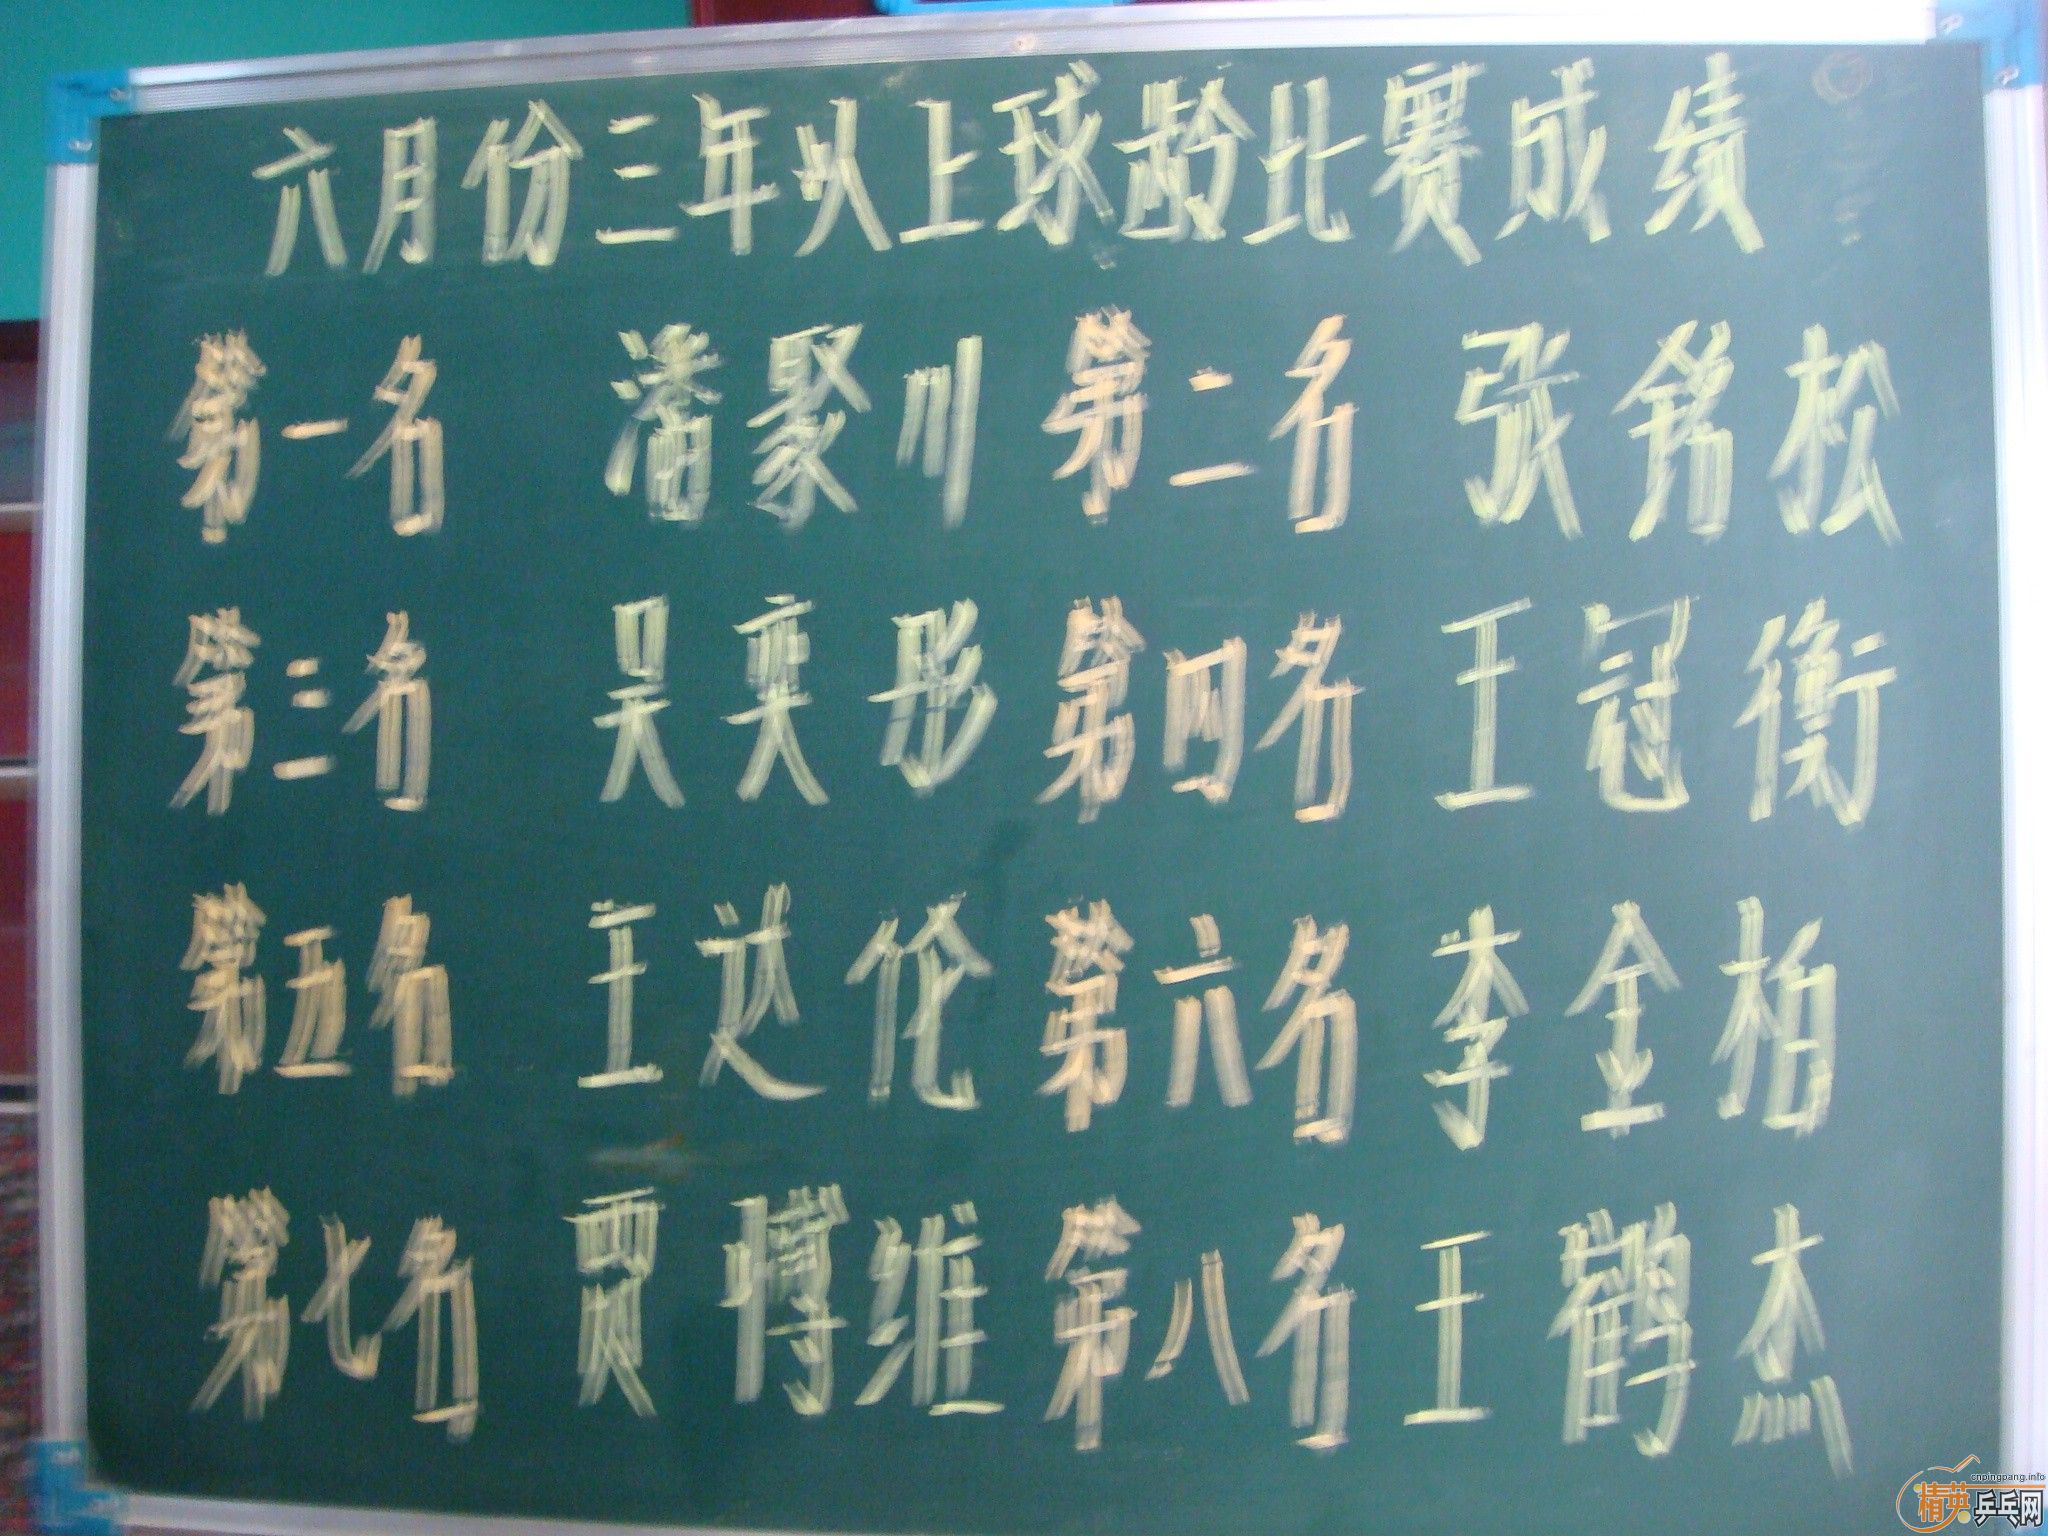 六月份三年以上球龄比赛成绩
第一名 潘聚川 第二名 张铭松
第三名 吴奕彤 第四名 王冠衡
第五名 王达伦 第六名 李金柏
第七名 贾惇维 第八名 王鹤杰
cnpingpang.info
精英乒乓网